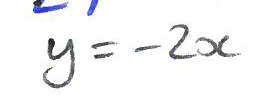 y = -2x